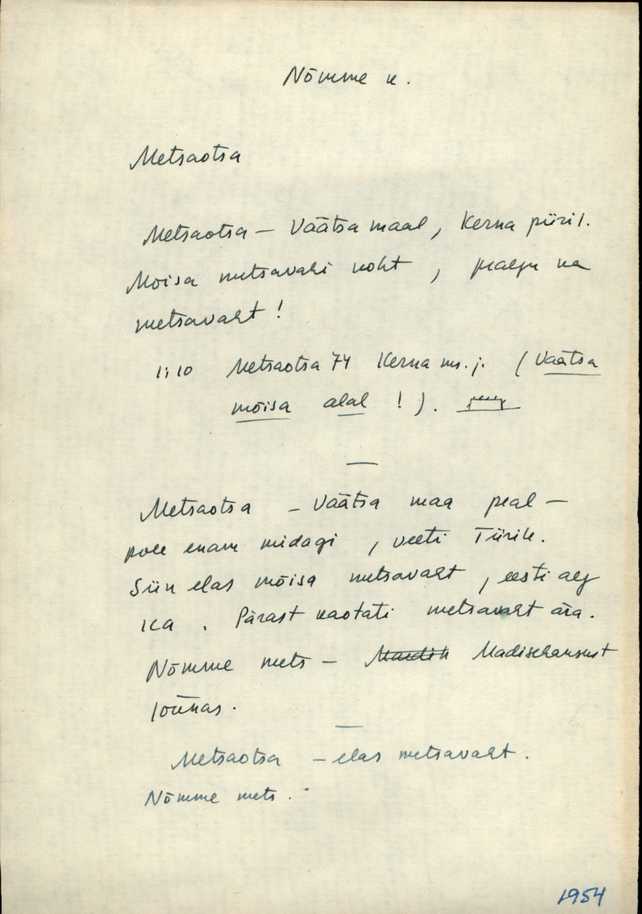 Nõmme k.
Metsaotsa
Metsaotsa – Väätsa maal, Kerna piiril.
Mõisa metsavahi koht, praegu ka
metsavaht!
1:10 Metsaotsa 74 Kerna ms. j. (Väätsa
mõisa alal!).
Metsaotsa – Väätsa maa peal –
pole enam midagi, veeti Türile.
Siin elas mõisa metsavaht, eesti aeg
ka. Pärast kaotati metsavaht ära.
Nõmme mets – Madisehansust
lõunas.
Metsaotsa – elas metsavaht.
Nõmme mets.
1954